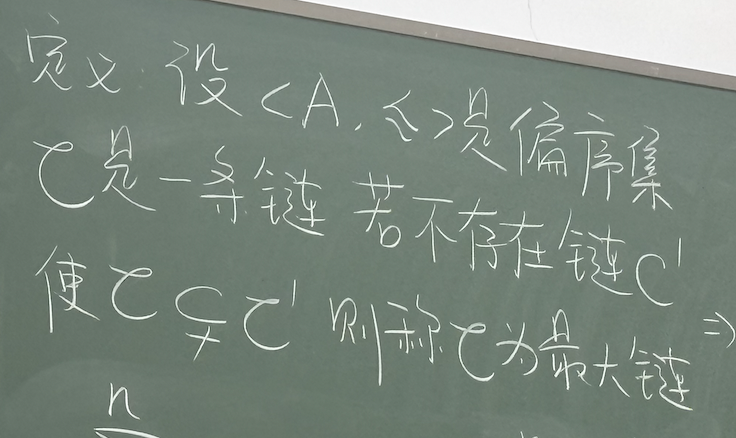 定义 设<A, ≤>是偏序集
C是一条链 若不存在链C'
使C⊊C' 则称C为最大链 ⇒
n